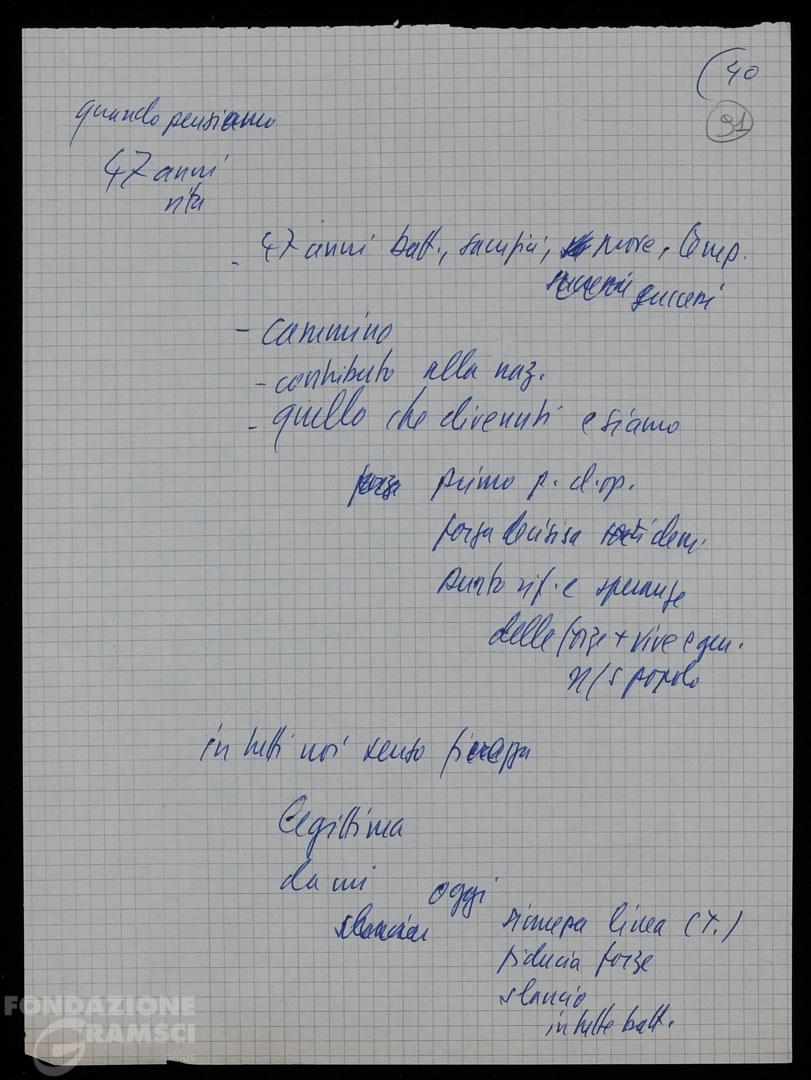 (40
91
quando pensiamo
47 anni
vita
- 47 anni batt., sacrifici, prove, comp.
successi
- cammino
- contributo alla naz.
- quello che divenuti e siamo
forza primo p. d'op.
forza decisiva sorti dem.
punto rif. e speranze
delle forze + vive e gen.
n/s popolo
in tutti noi senso fierezza
legittima
da cui oggi
slancio sicurezza linea (T.)
fiducia forze
slancio
in tutte batt.
FONDAZIONE
GRAMSCI
onlus